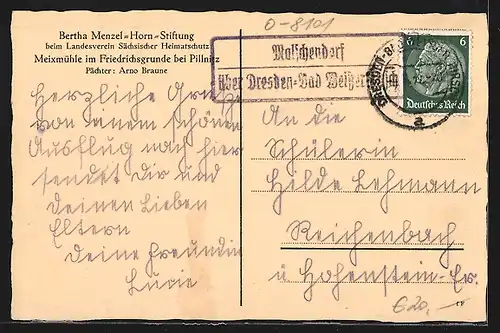 O-8101
Bertha Menzel=Horn=Stiftung
beim Landesverein Sächsischer Heimatschutz
Meixmühle im Friedrichsgrunde bei Pillnitz
Pächter: Arno Braune
Malschendorf
über Dresden-Bad
6 6
Deutsches Reich
a
Herzliche Grüße
von einem schönen
Ausflug nach hier
sendet Dir und
Deinen Lieben
Eltern
Deine Freundin
Luzie
An die
Schülerin
Hilde Lehmann
Reichenbach
ü Hohenstein-Er.
€ 20,-